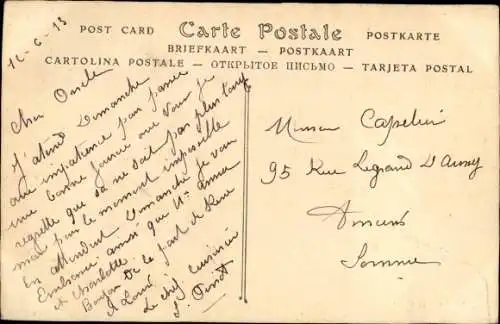 POST CARD Carte Postale POSTKARTE
BRIEFKAART — POSTKAART
CARTOLINA POSTALE — ОТКРЫТОЕ ПИСЬМО — TARJETA POSTAL
12-6-13
Cher Oncle
J'attend Dimanche
avec impatience pour passer
une bonne journée avec vous Je
regrette que sa ne soit pas plus tard
mais pour le moment impossible
En attendant Dimanche Je vous
Embrasse ainsi que
et Charlotte
Bonjour de la part de René
et Louis
Le chef cuisinier
Monsieur
95 Rue Legrand D'Aussy
Amiens
Somme